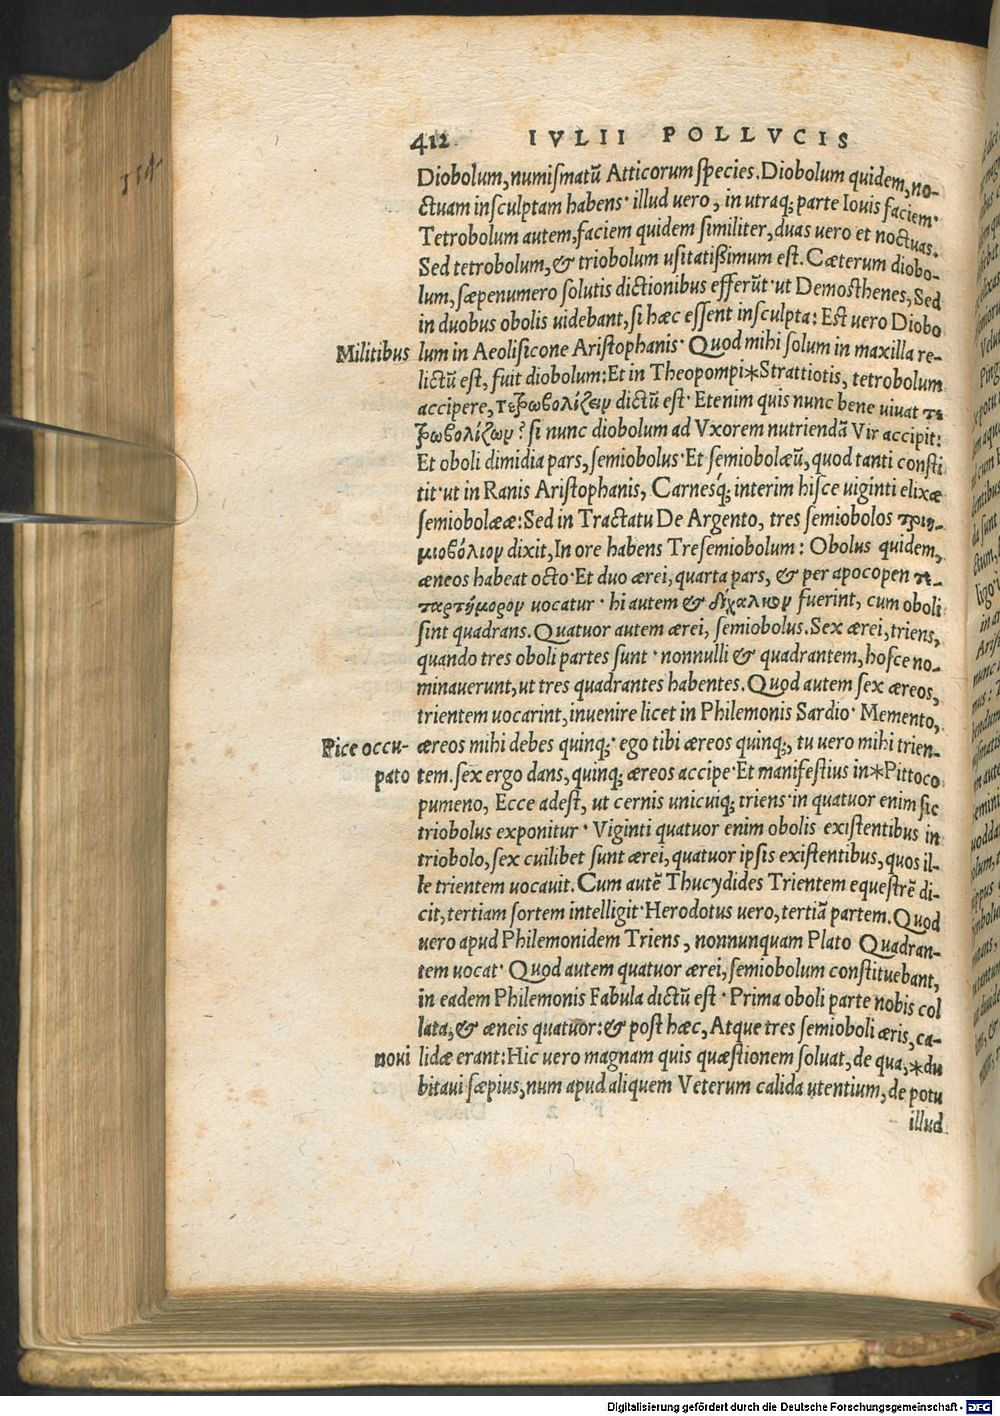 114
412 IVLII POLLVCIS
Diobolum, numiſmatũ Atticorum ſpecies. Diobolum quidem, no-
ctuam inſculptam habens· illud uero, in utraq; parte Iouis faciem·
Tetrobolum autem, faciem quidem ſimiliter, duas uero et noctuas.
Sed tetrobolum, & triobolum uſitatißimum eſt. Cæterum diobo-
lum, ſæpenumero ſolutis dictionibus efferũt·ut Demoſthenes, Sed
in duobus obolis uidebant, ſi hæc eſſent inſculpta: Eſt uero Diobo
Militibus lum in Aeoliſicone Ariſtophanis· Quod mihi ſolum in maxilla re-
lictũ eſt, fuit diobolum: Et in Theopompi*Strattiotis, tetrobolum
accipere, τετρωβολίζειν dictũ eſt· Etenim quis nunc bene uiuat τε
τρωβολίζων? ſi nunc diobolum ad Vxorem nutriendã Vir accipit:
Et oboli dimidia pars, ſemiobolus·Et ſemiobolæũ, quod tanti conſti
tit·ut in Ranis Ariſtophanis, Carneſq́; interim hiſce uiginti elixæ
ſemiobolææ: Sed in Tractatu De Argento, tres ſemiobolos τριη-
μιοβόλιον dixit, In ore habens Treſemiobolum: Obolus quidem,
æneos habeat octo·Et duo ærei, quarta pars, & per apocopen τε-
ταρτήμορον uocatur· hi autem & δίχαλκον fuerint, cum oboli
ſint quadrans. Quatuor autem ærei, ſemiobolus. Sex ærei, triens,
quando tres oboli partes ſunt· nonnulli & quadrantem, hoſce no-
minauerunt, ut tres quadrantes habentes. Quod autem ſex æreos,
trientem uocarint, inuenire licet in Philemonis Sardio· Memento,
Pice occu- æreos mihi debes quinq;· ego tibi æreos quinq;, tu uero mihi trien-
pato tem. ſex ergo dans, quinq; æreos accipe·Et manifeſtius in*Pittoco
pumeno, Ecce adeſt, ut cernis unicuiq; triens·in quatuor enim ſic
triobolus exponitur· Viginti quatuor enim obolis exiſtentibus in
triobolo, ſex cuilibet ſunt ærei, quatuor ipſis exiſtentibus, quos il-
le trientem uocauit. Cum autẽ Thucydides Trientem equeſtrẽ di-
cit, tertiam ſortem intelligit·Herodotus uero, tertiã partem. Quod
uero apud Philemonidem Triens, nonnunquam Plato Quadran-
tem uocat· Quod autem quatuor ærei, ſemiobolum conſtituebant,
in eadem Philemonis Fabula dictũ eſt· Prima oboli parte nobis col
lata, & æneis quatuor: & poſt hæc, Atque tres ſemioboli æris, ca-
noui lidæ erant: Hic uero magnam quis quæſtionem ſoluat, de qua, *du
bitaui ſæpius, num apud aliquem Veterum calida utentium, de potu
illud
Digitalisierung gefördert durch die Deutsche Forschungsgemeinschaft - DFG